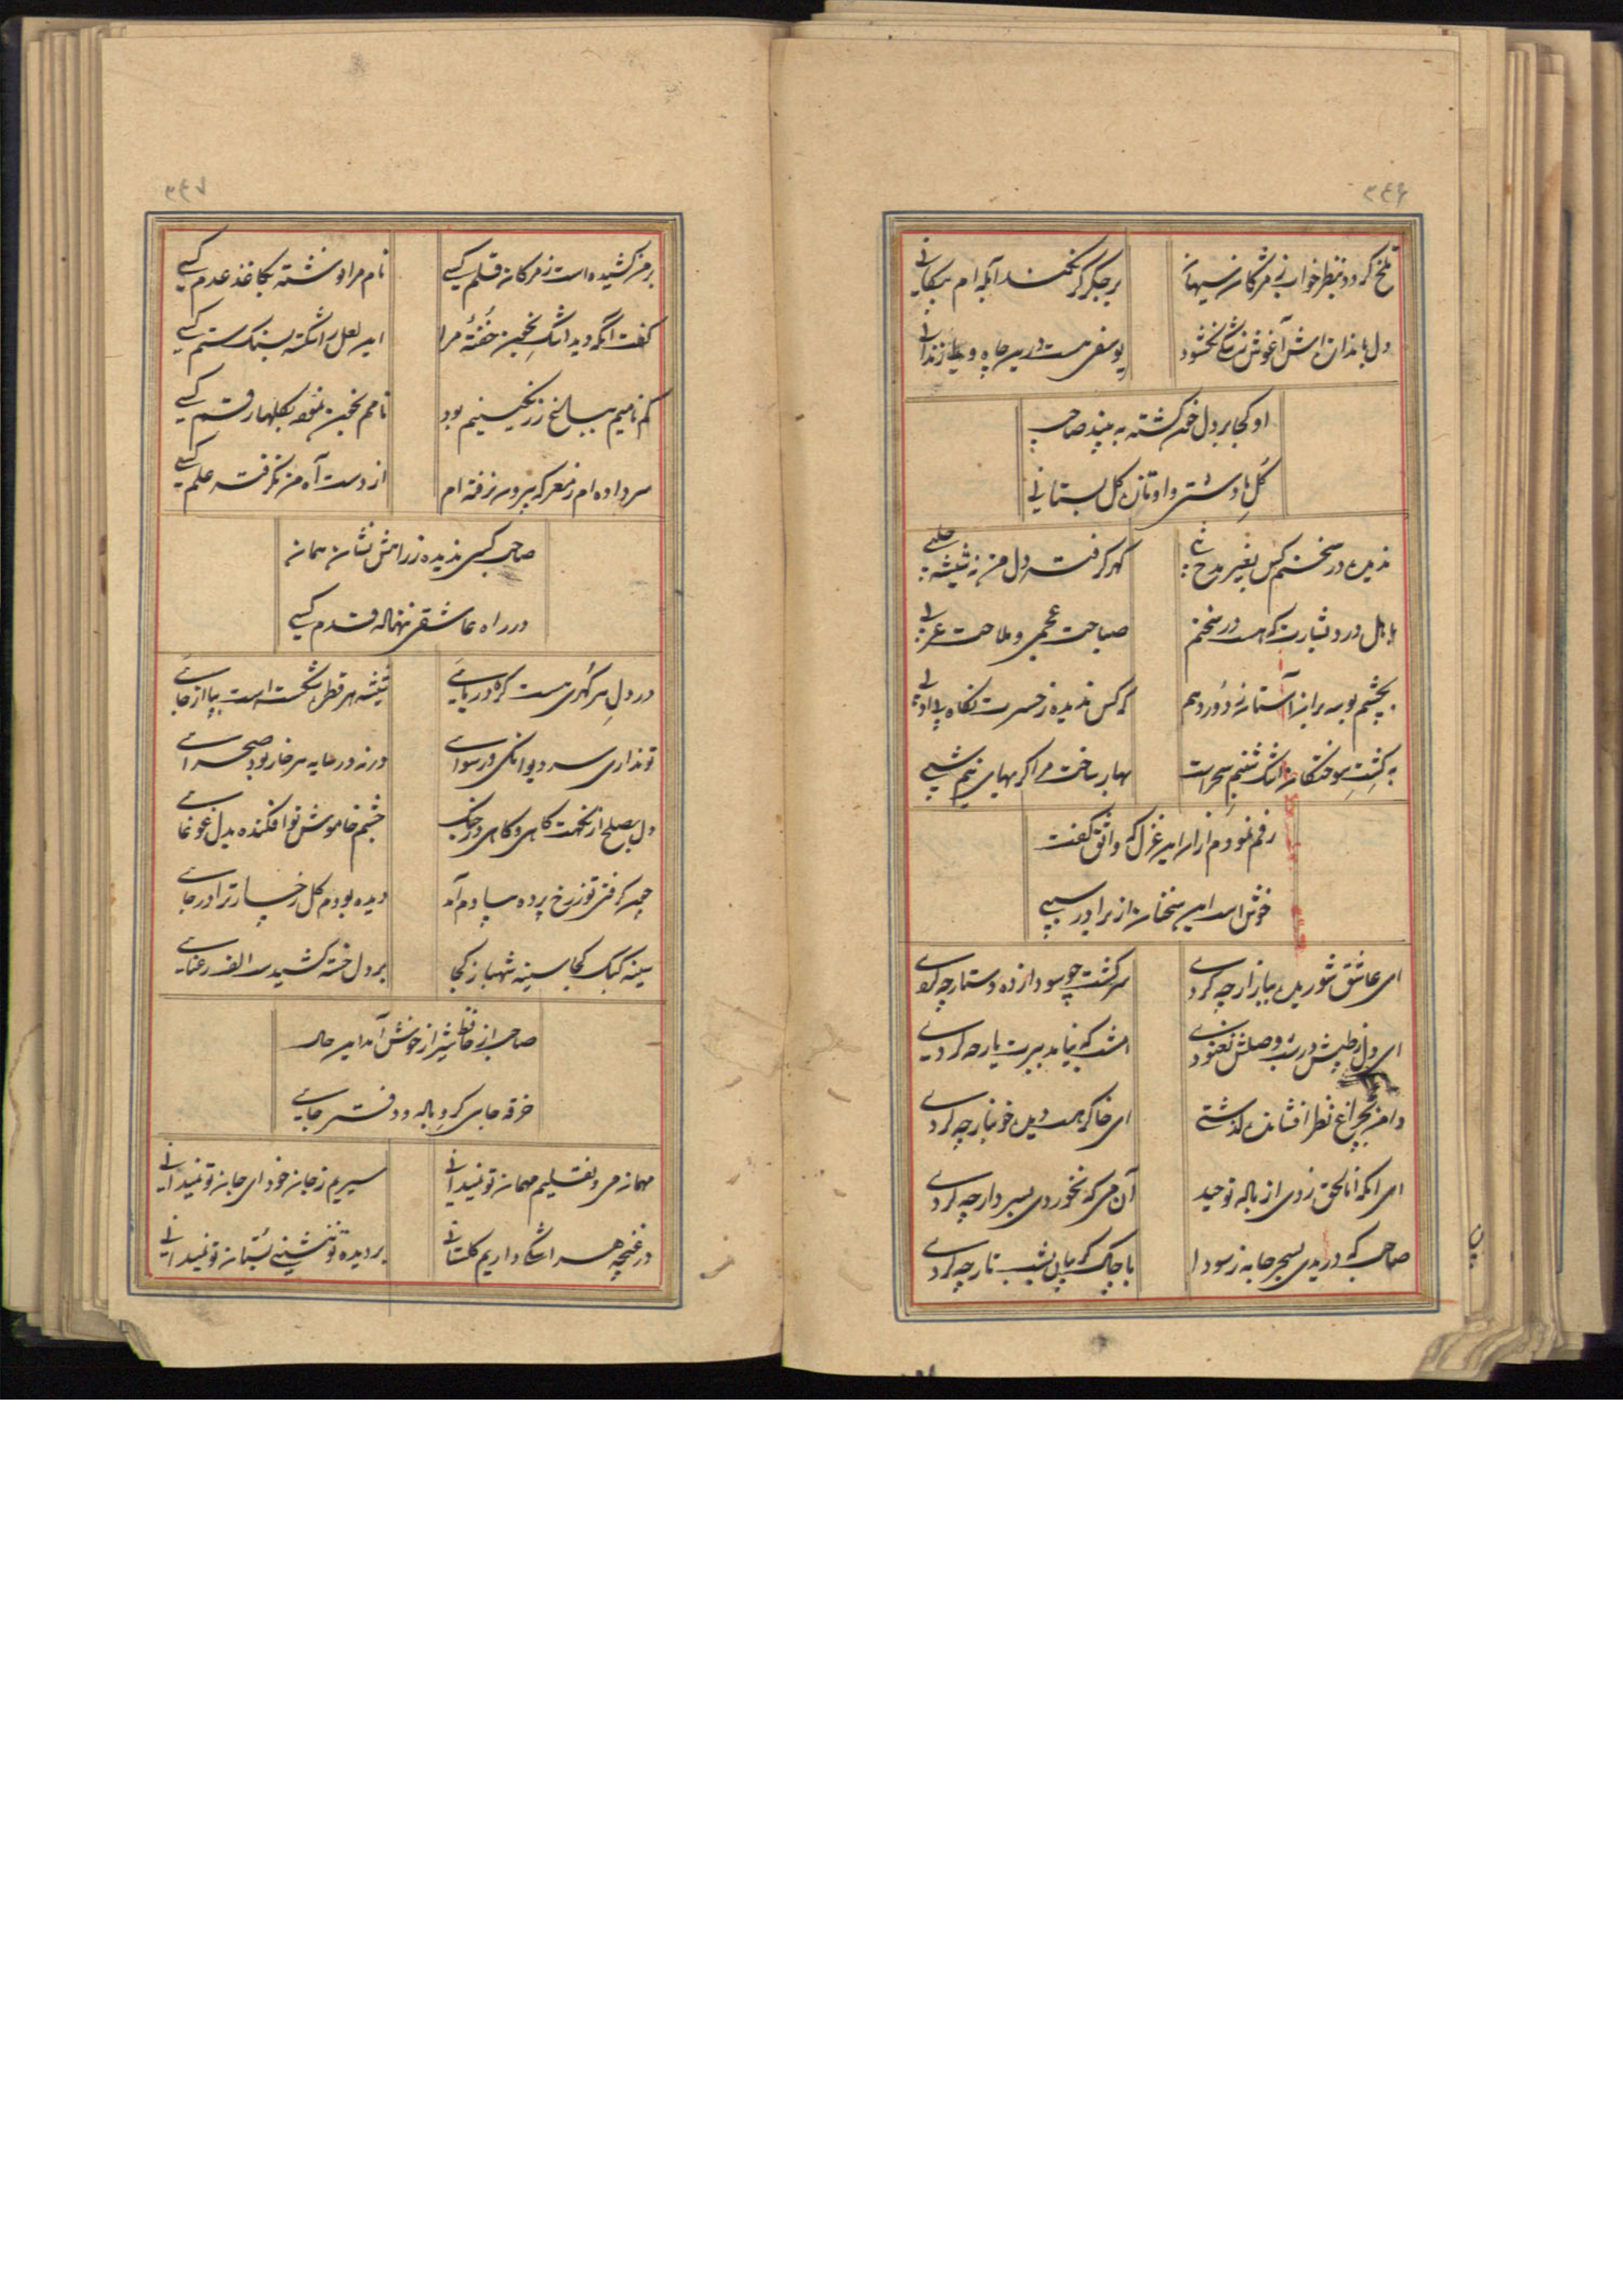 ۳۶۶
تلخ گردد بنظر خواب ز مژگان سیهانی
بر جگر گر نخلند آبله ام پیکانی
یوسفی هست درین چاه و زندانی
او کجا بر دل خون گشته به بیند صاحب
گل ما دشتی و او تازه گل بستانی
ندیده در سخنم کس بغیر مدح
که گرفت دل من ز شیشه حلبی
درد بشارت که هست در سخنم
صباحت عجمی و ملاحت عربی
بچشم بوسه بر آن آستانه دور دهم
که کس ندیده ز حسرت نگاه بی ادبی
به کشت سوختگان اشک شبنم سحر است
بهار ساخت مرا گریهای نیم شبی
رقم نمودم ازان این غزل که واثق گفت
خوش است این سخنان از برادر سببی
ای عاشق شوریده ببازار چه کردی
سر گشت چو سودازده دستار چه کردی
ای دل ز طپش در شب وصلش نغنودی
امشب که نیامد ببرت یار چه کردی
دامن بچراغ نظر افشانده گذشتی
ای خاک بسر دیده خونبار چه کردی
ای آنکه انالحق زدی از باله توحید
آن می که نخوردی بسر دار چه کردی
صاحب که دریدی بسحر جامه ز سودا
با چاک گریبان بشب تار چه کردی
۳۶۷
بر من کشیده است ز مژگان قلم کسی
نام مرا نوشته بکاغذ عدم کسی
گفت آنکه دید اشک بخون خفته مرا
این لعل را شکسته بسنگ ستم کسی
گم نامیم ببال خ ز رنگینیم بود
نامم بخون نمود بگلها رقم کسی
سر داده ام ز معرکه بیرون نرفته ام
از دست آه من نگرفته علم کسی
صاحب کسی ندیده ز راهش نشان همان
در راه عاشقی ننهاده قدم کسی
در دل هر گهری هست گره دریائی
شیشه هر قطره شکست است بپا از جائی
تو نداری سر دیوانگی و رسوائی
ورنه در سایه هر خار بود صحرائی
دل بصلح از نگهت گاهی و گاهی در جنگ
چشم خاموش تو افکنده بدل غوغائی
چون گرفتی تو ز رخ پرده بیادم آمد
دیده بودم گل رخسار ترا در جائی
سینه کبک کجا سینه شهباز کجا
بر دل خسته کشیدست الف رعنائی
صاحب از حافظ شیراز خوش آمد این حال
خرقه جائی گرو باده و دفتر جائی
مهمان من و نقلیم مهمان تو نمیدانی
سیریم ز جان خود ای جان تو نمیدانی
در غنچه هر اشکی داریم گلستانی
بر دیده تو ننشینی بستان تو نمیدانی